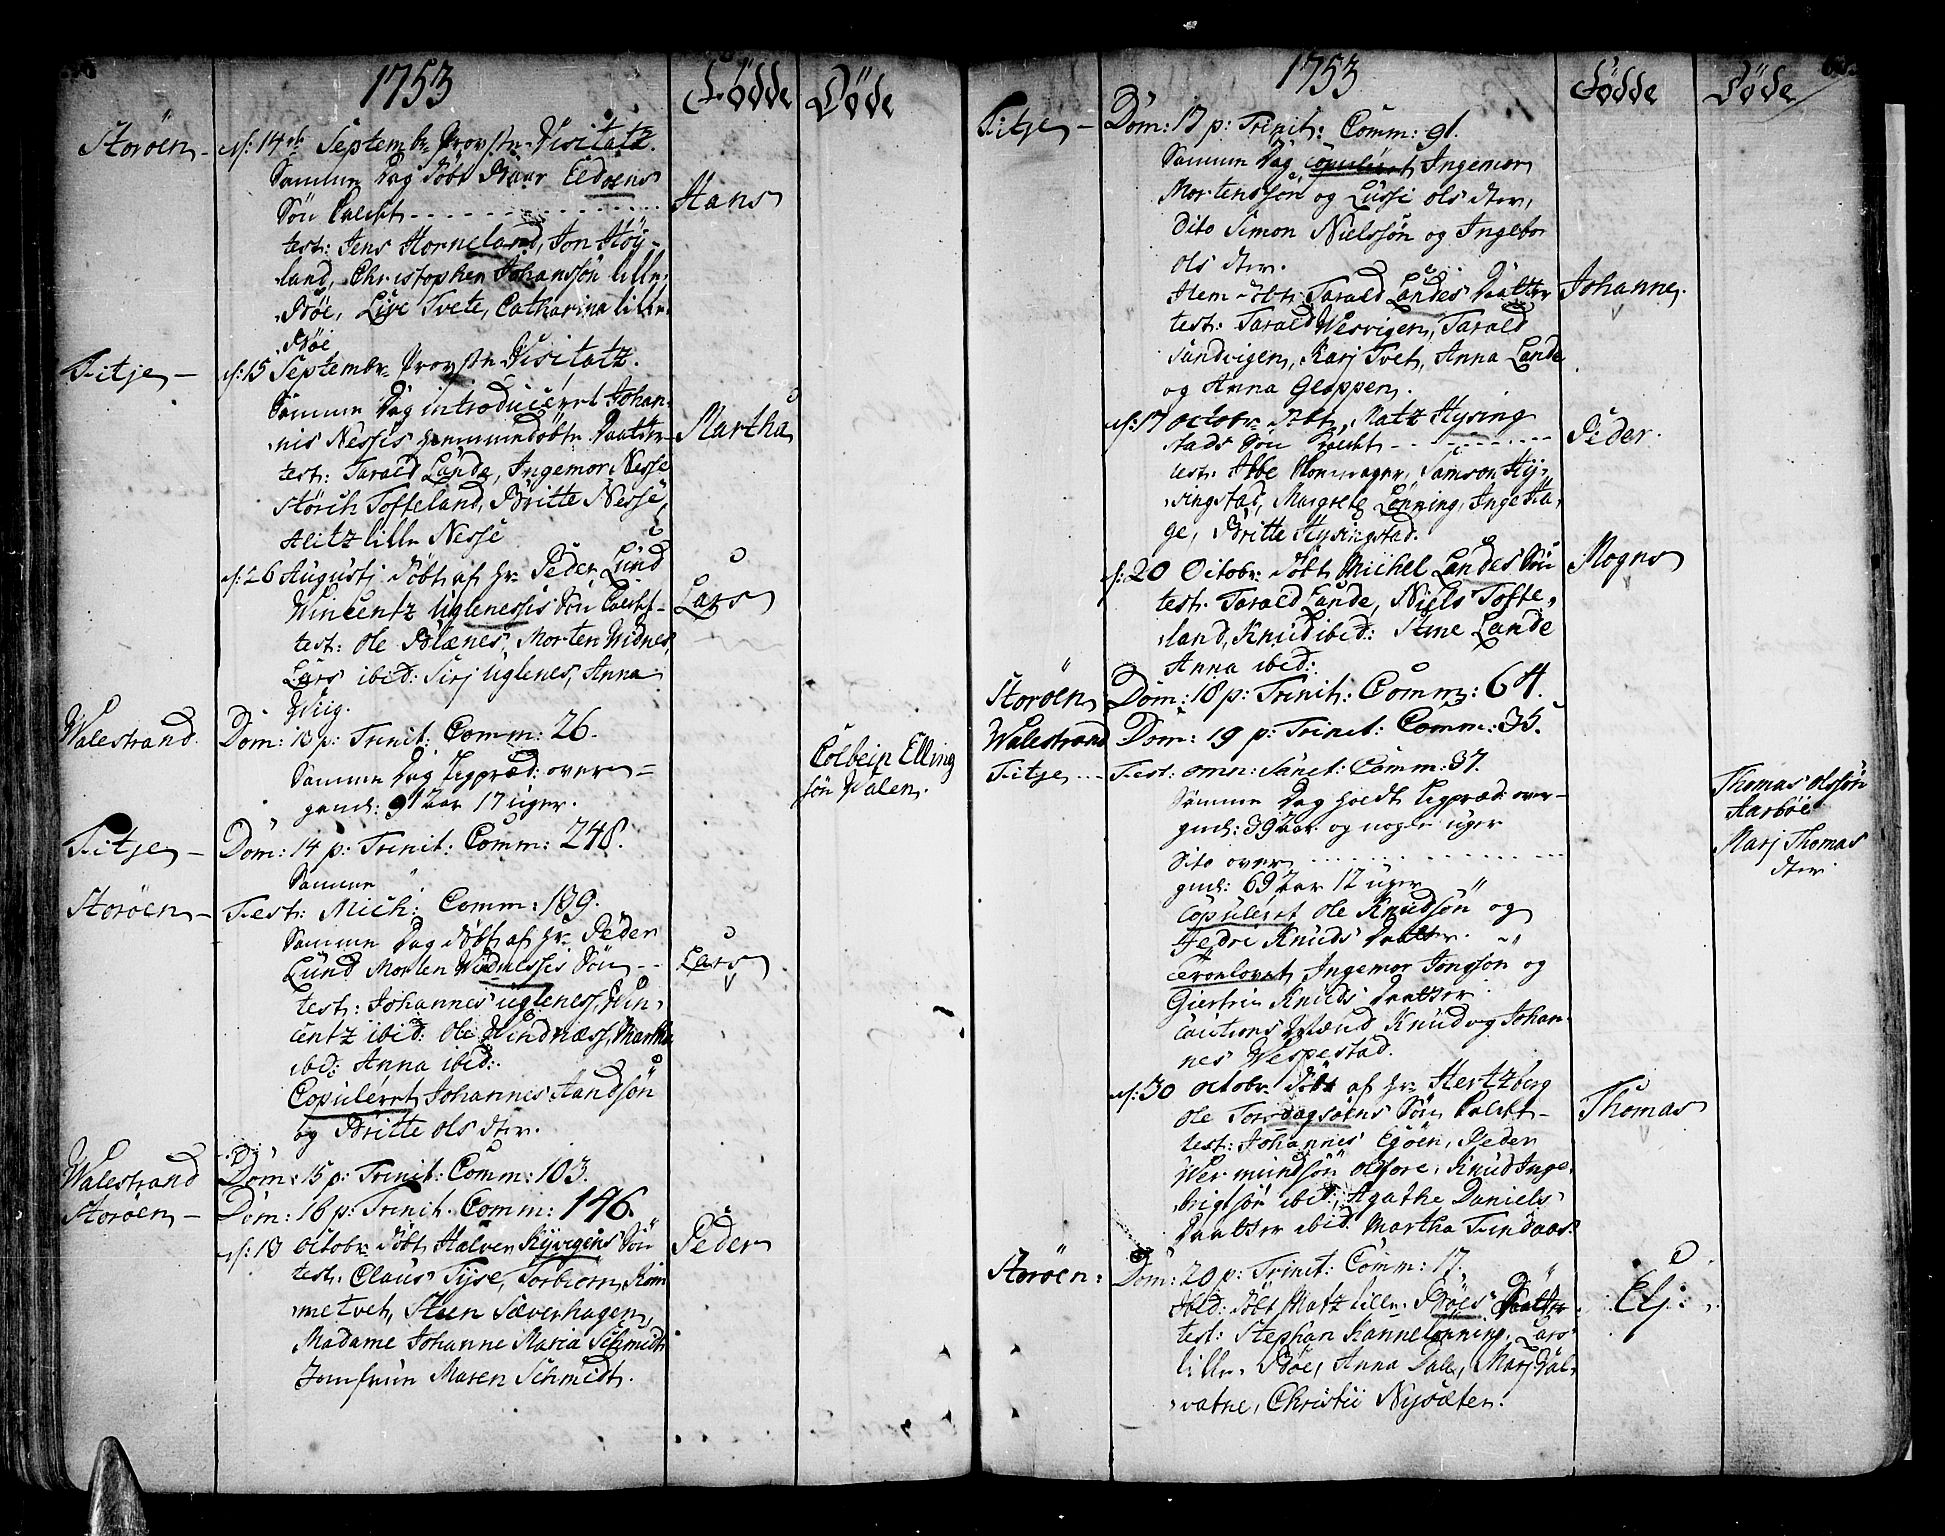 1753
Födde
Döde
Storöen
d: 14de Septembr Provste Visitatz.
Samme Dag döbt Baar Eldöens
Sön kaldt
Hans
test: Jens Horneland, Jon Höy-
land, Christopher Johanssön lille
Böe, Live Tvete, Catharina lille
Böe
Fitje
d: 15 Septembr Provste Visitatz.
Samme Dag introduceret Johan-
nis Nesses hiemmedöbte Daatter
Martha
test: Tarald Lande, Ingemor Nesse
Störch Toffteland, Britte Nesse,
Alitz lille Nesse
d: 26 Augusti döbt af hr Peder Lund
Wincentz Uglenessis Sön kaldt
Lars
test: Ole Blænes, Morten Widnes,
Lars ibid: Sirj Uglenes, Anna
Wiig.
Walestrand
Dom: 13 p: Trinit: Comm: 26.
Samme Dag ligpræd: over
Colbein Elling
sön Walen.
gaml: 91 Aar 17 uger.
Fitje
Dom: 14 p: Trinit: Comm: 248.
Samme
Storöen
Fest: Mich: Comm: 139.
Samme Dag döbt af hr Peder
Lund Morten Widnessis Sön
Lars
test: Johannes Uglenes, Win-
centz ibid: Ole Hindnæss, Martha
ibid: Anna ibid:
Copuleret Johannes Aandsön
og Britte Ols dter.
Walestrand
Dom: 15 p: Trinit: Comm: 103.
Storöen
Dom: 16 p: Trinit. Comm: 146.
d: 13 Octobr döbt Halvor Kyvigens Sön
Peder
test: Claus Tyse, Torbiorn Rom
metvet, Steen Sæverhagen,
Madame Johanne Maria Schmidt
Jomfruen Maren Schmidt.
1753
Födde
Döde
Fitje
Dom: 17 p: Trinit: Comm: 91.
Samme Dag copuleret Ingemor
Mortenssön og Lussi Ols dter,
Dito Simon Nielssön og Ingebor
Ols dter.
Item döbt Tarald Landes Daatter
Johanne
test: Tarald Wesvigen, Tarald
Sandvigen, Karj Tvet, Anna Lande
og Anna Gloppen.
d: 17 Octobr döbt Matz Hysing
stads Sön kaldt
Peder
test: Abbe Hornepager, Samson Hy-
singstad, Margrete Lönning, Inge Ha-
ge, Britte Hysingstad.
d: 20 Octobr döbt Michel Landes Sön
Mogns
test. Tarald Lande, Niels Tofte-
land, Knud ibid: Stine Lande
Anna ibid:
Storöen
Dom: 18 p: Trinit: Comm: 64.
Walestrand
Dom: 19 p: Trinit: Comm: 35.
Fitje
Fest: omn: Sanct: Comm: 37.
Samme Dag holdt ligpræd: over
Thomas Olssön
Aarböe
gml: 39 Aar og nogle uger
Dito over
Marj Thomas
dter
gml: 69 Aar 12 uger
Copuleret Ole Knudsön og
Hedre Knuds Daatter.
Trolovet Ingemor Jongson og
Giertrü Knuds Daatter
Cautions Mænd Knud og Johan-
nes Wespestad.
d: 30 Octobr döbt af hr Hertzberg
Ole Torsdagsöens Sön kaldt
Thomas
test: Johannes Egöen, Peder
Wermundsön Olfore, Knud Inge-
brigtsön ibid, Agathe Daniels
Daatter ibid. Martha Findaas.
Storöen
Dom: 20 p: Trinit: Comm: 17.
döbt Matz lille Böes Daatter
Elj:
test: Stephan Kannelönning, Lars
lille Böe, Anna Dale, Marj Dal-
vatne, Christii Nysæter.